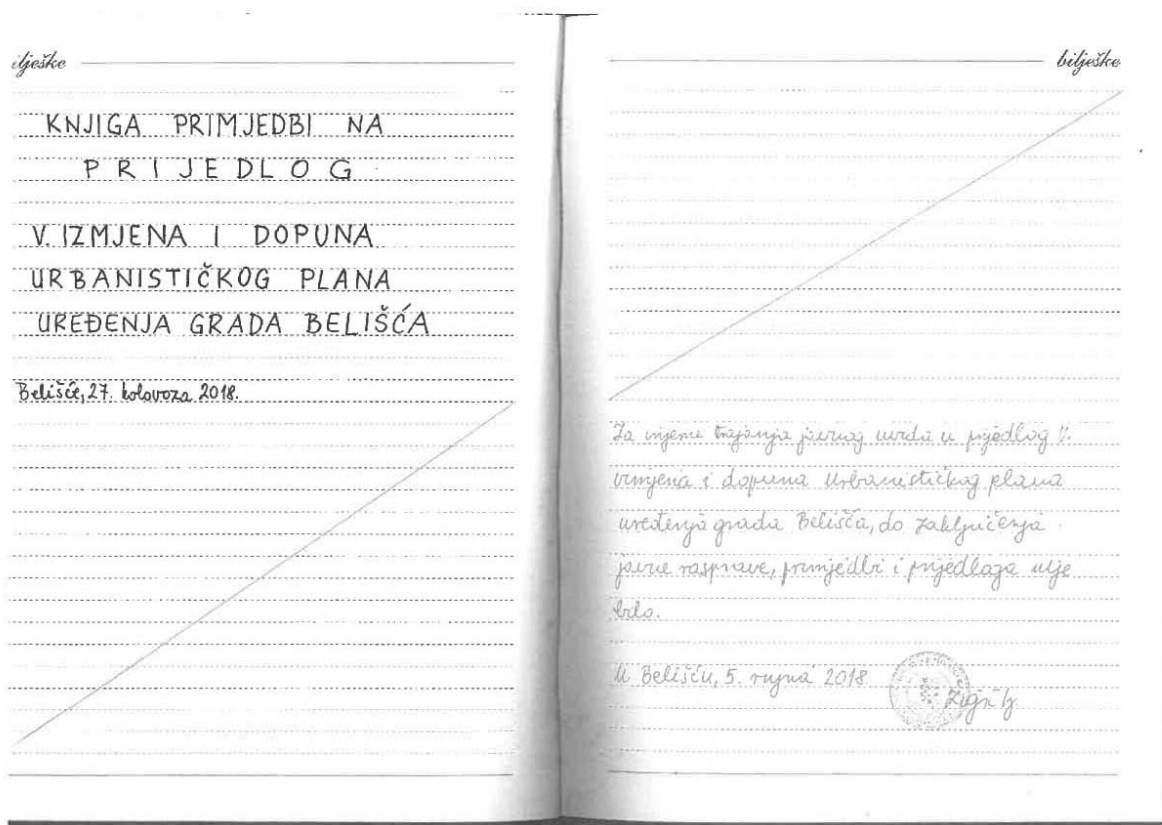 ilješke
KNJIGA PRIMJEDBI NA
PRIJEDLOG
V. IZMJENA I DOPUNA
URBANISTIČKOG PLANA
UREĐENJA GRADA BELIŠĆA
Belišće, 27. kolovoza 2018.
bilješke
Za vrijeme trajanja javnog uvida u prijedlog V.
izmjena i dopuna Urbanističkog plana
uređenja grada Belišća, do zaključenja
javne rasprave, primjedbi i prijedloga nije
bilo.
U Belišću, 5. rujna 2018.